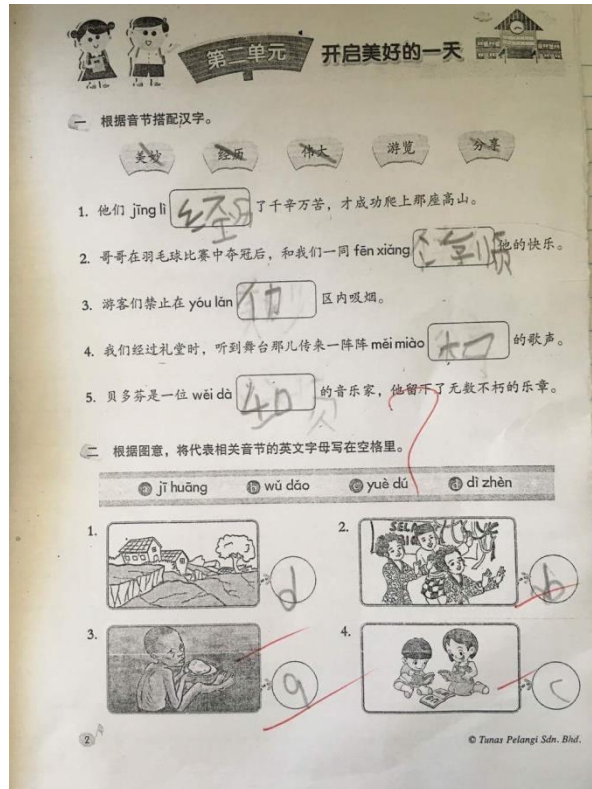 第二单元 开启美好的一天
一 根据音节搭配汉字。
美妙 经历 伟大 游览 分享
1. 他们 jīng lì 经 了千辛万苦，才成功爬上那座高山。
2. 哥哥在羽毛球比赛中夺冠后，和我们一同 fēn xiǎng 他的快乐。
3. 游客们禁止在 yóu lǎn 区内吸烟。
4. 我们经过礼堂时，听到舞台那儿传来一阵阵 měi miào 的歌声。
5. 贝多芬是一位 wěi dà 的音乐家，他留下了无数不朽的乐章。
二 根据图意，将代表相关音节的英文字母写在空格里。
a jī huāng b wǔ dǎo c yuè dú d dì zhèn
1. d 2. b
3. a 4. c
2 © Tunas Pelangi Sdn. Bhd.